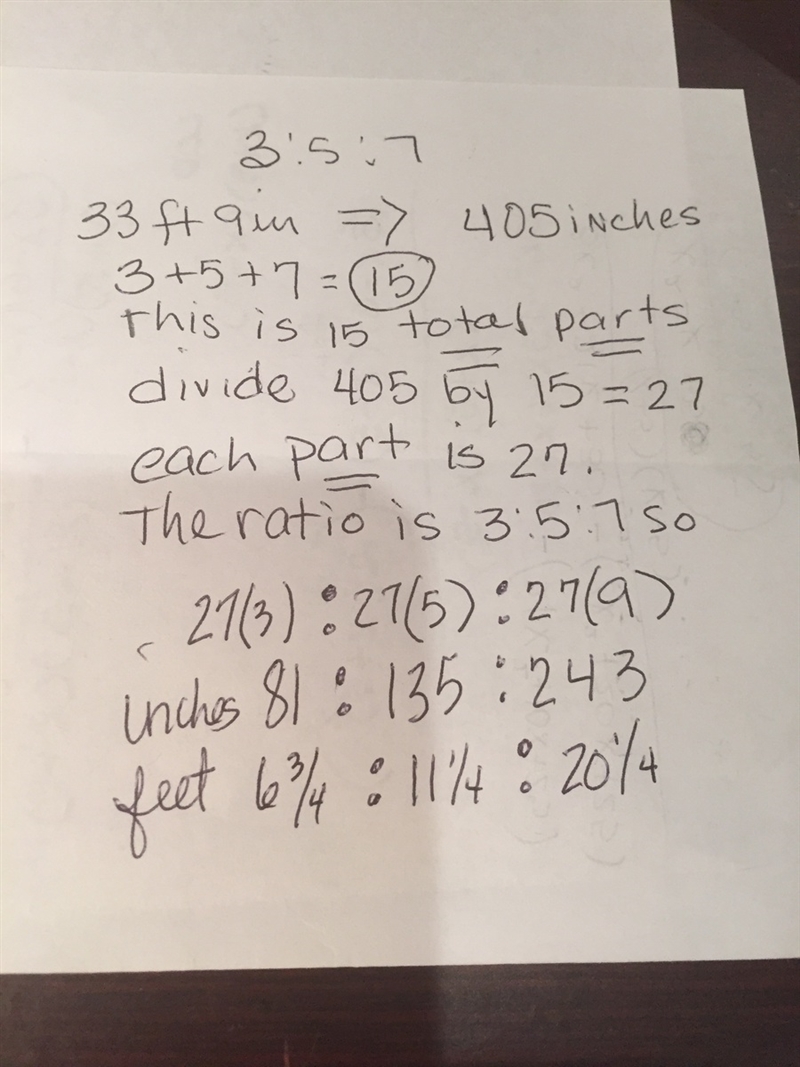 3:5:7
33 ft 9 in => 405 inches
3+5+7 = 15
This is 15 total parts
divide 405 by 15 = 27
each part is 27.
The ratio is 3:5:7 so
27(3) : 27(5) : 27(9)
inches 81 : 135 : 243
feet 6 3/4 : 11 1/4 : 20 1/4